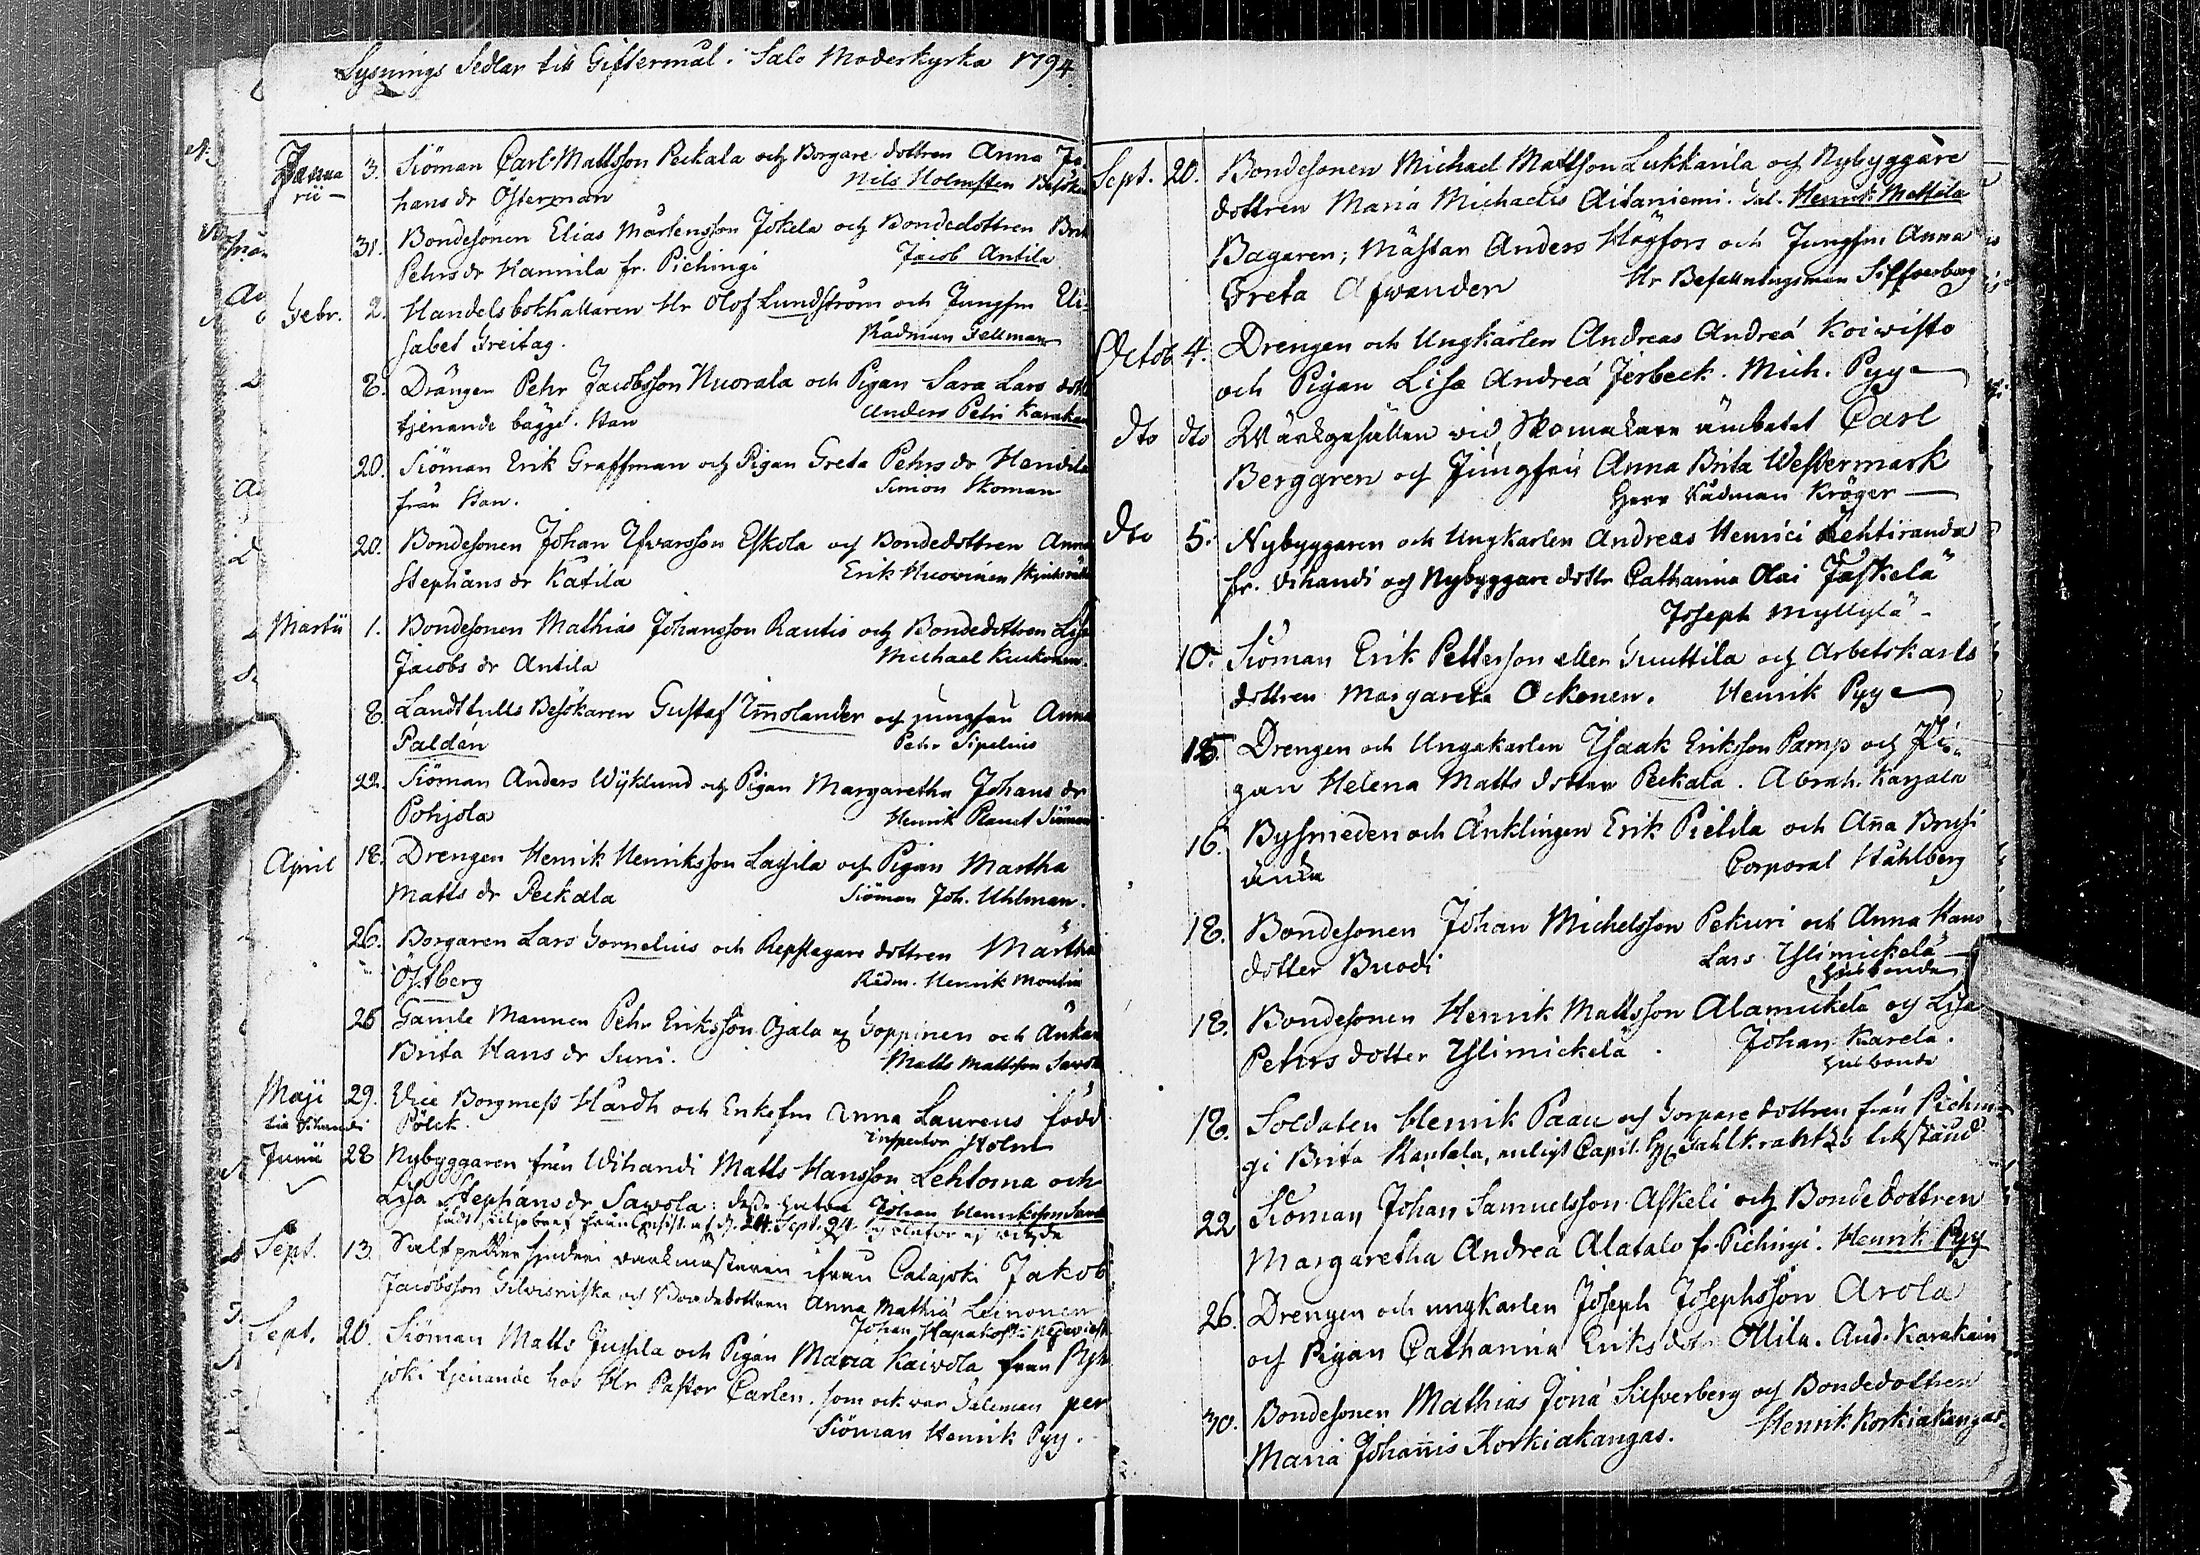 Lysnings Sedlar till Giftermål i Salo Moderkyrka 1794.
Janua
rii 3. Siöman Carl Mattsson Peckala och Borgare dottren Anna Jo-
hans dr Österman Nils Holmsten
31. Bondesonen Elias Mårtensson Jokela och Bondedottren Brit
Pehrs dr Hannila fr. Pichingi Jacob Antila
Febr. 2. Handels bokhållaren Hr Olof Lundström och Jungfru Eli-
sabet Freitag. Rådman Gellman
8. Drängen Pehr Jacobsson Nuorala och Pigan Sara Lars dott
tjenande bägge. Anders Petri Karakan
20. Siöman Erik Graffman och Pigan Greta Pehrs dr Hendila
från Simon Skoman
20. Bondesonen Johan Ifvarsson Eskola och Bondedottren Anna
Stephans dr Katila Erik Huovinen
Martii 1. Bondesonen Mathias Johansson Rautio och Bondedottren Lisa
Jacobs dr Antila Michael Kuckonen.
8. Landttulls Besökaren Gustaf Imolander och jungfru Anna
Palden Pehr Sipelius
22. Siöman Anders Wijklund och Pigan Margaretha Johans dr
Pohjola Henrik Planet Siöman
April 18. Drengen Henrik Henriksson Lassila och Pigan Martha
Matts dr Peckala Siöman Joh. Uhlman.
26. Borgaren Lars Cornelius och Repslagare dottren Märtha
Östberg Rådm. Henrik Montin
26 Gamle Mannen Pehr Eriksson Ojala Goppinen och Änkan
Brita Hans dr Suni. Matts Mattsson Savola
Maji 29. Vice Borgmest Hårdh och Enkefru Anna Laurens född
Pölck. inspector Holm
Junii 28 Nybyggaren från Wihandi Matts Hansson Lehtoma och
Lisa Stephans dr Savola: Johan Henriksson
Sept. 24
Sept. 13. Calajoki Jakob
Jacobsson och Bondedottren Anna Mathiæ Leinonen
Johan Hapakoski
Sept. 20. Siöman Matts Jussila och Pigan Maria Kaivola från Pyh
joki tjenande hos Hr Pastor Carlen. som ock var per
Siöman Henrik Pyy.
Sept. 20. Bondesonen Michael Mattsson Lukkarila och Nybyggare
dottren Maria Michaelis Aitaniemi. Henrik Mattila
Bagaren; Mästar Anders Högfors och Jungfru Anna
Greta Afwander Hr Befallningsman Silfverberg
Octob. 4. Drengen och Ungkarlen Andreas Andreæ Koivisto
och Pigan Lisa Andreæ Jerbeck. Mich. Pyy
dto dto Wärkgesällen vid Skomakare ämbetet Carl
Berggren och Jungfru Anna Brita Westermark
Herr Rådman Kröger
dto 5. Nybyggaren och Ungkarlen Andreas Henrici Lehtiranda
fr. Vihandi och Nybyggare dottr Catharina Olai Jäskelä
Joseph Myllylä
10. Siöman Erik Pettersson eller Guuttila och Arbetskarls
dottren Margareta Ockonen. Henrik Pyy
15. Drengen och Ungakarlen Isaak Eriksson Pamp och Pi-
gan Helena Matts dotter Peckala. Abrah. Karjala
16. Bysmeden och Änklingen Erik Pietila och Anna Brusi
änka Corporal Ståhlberg
18. Bondesonen Johan Michelsson Pekuri och Anna Hans
dotter Buodi Lars Ylimickelä
husbonde
18. Bondesonen Henrik Mattsson Alamickelä och Lisa
Pehrs dotter Ylimickelä. Johan Karela.
husbonde
18. Soldaten Henrik Paau och dottren från Pichin-
gi Brita Rantala, enligt Capit. Hr tilstånd
22 Siöman Johan Samuelsson Askeli och Bondedottren
Margaretha Andreæ Alatalo fr. Pichingi. Henrik Pyy
26. Drengen och ungkarlen Joseph Josephsson Arola
och Pigan Catharina Eriks dotr Ollila. And. Karakain
30. Bondesonen Mathias Jonæ Silfverberg och Bondedottren
Maria Johannis Korkiakangas. Henrik Korkiakangas.